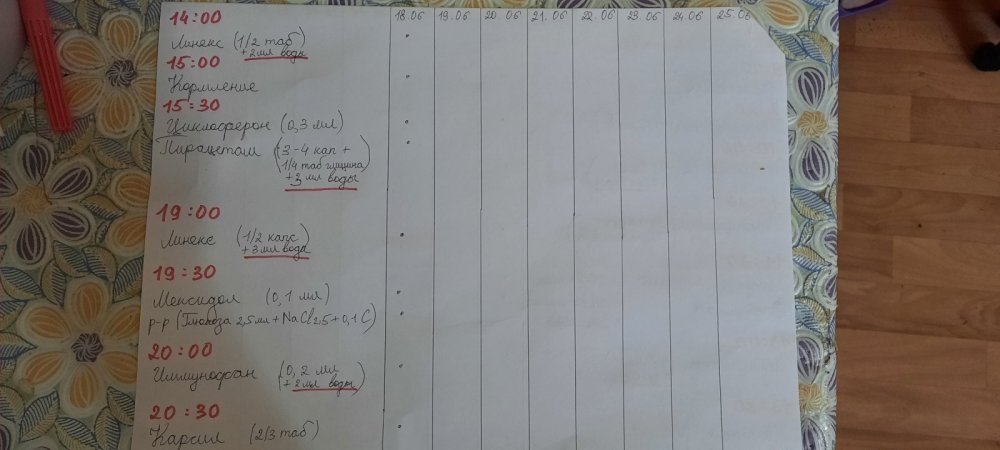 18.06 19.06 20.06 21.06 22.06 23.06 24.06 25.06
14:00
Линекс (1/2 таб
+2 мл воды)
15:00
Кормление
15:30
Циклоферон (0,3 мл)
Пирацетам (3-4 кап +
1/4 таб глицина
+3 мл воды)
19:00
Линекс (1/2 капс
+3 мл вода)
19:30
Мексидол (0,1 мл)
р-р (Глюкоза 2,5мл + NaCl 2,5 + 0,1 С)
20:00
Иммунофан (0,2 мл
+ 2 мл воды)
20:30
Карсил (2/3 таб)